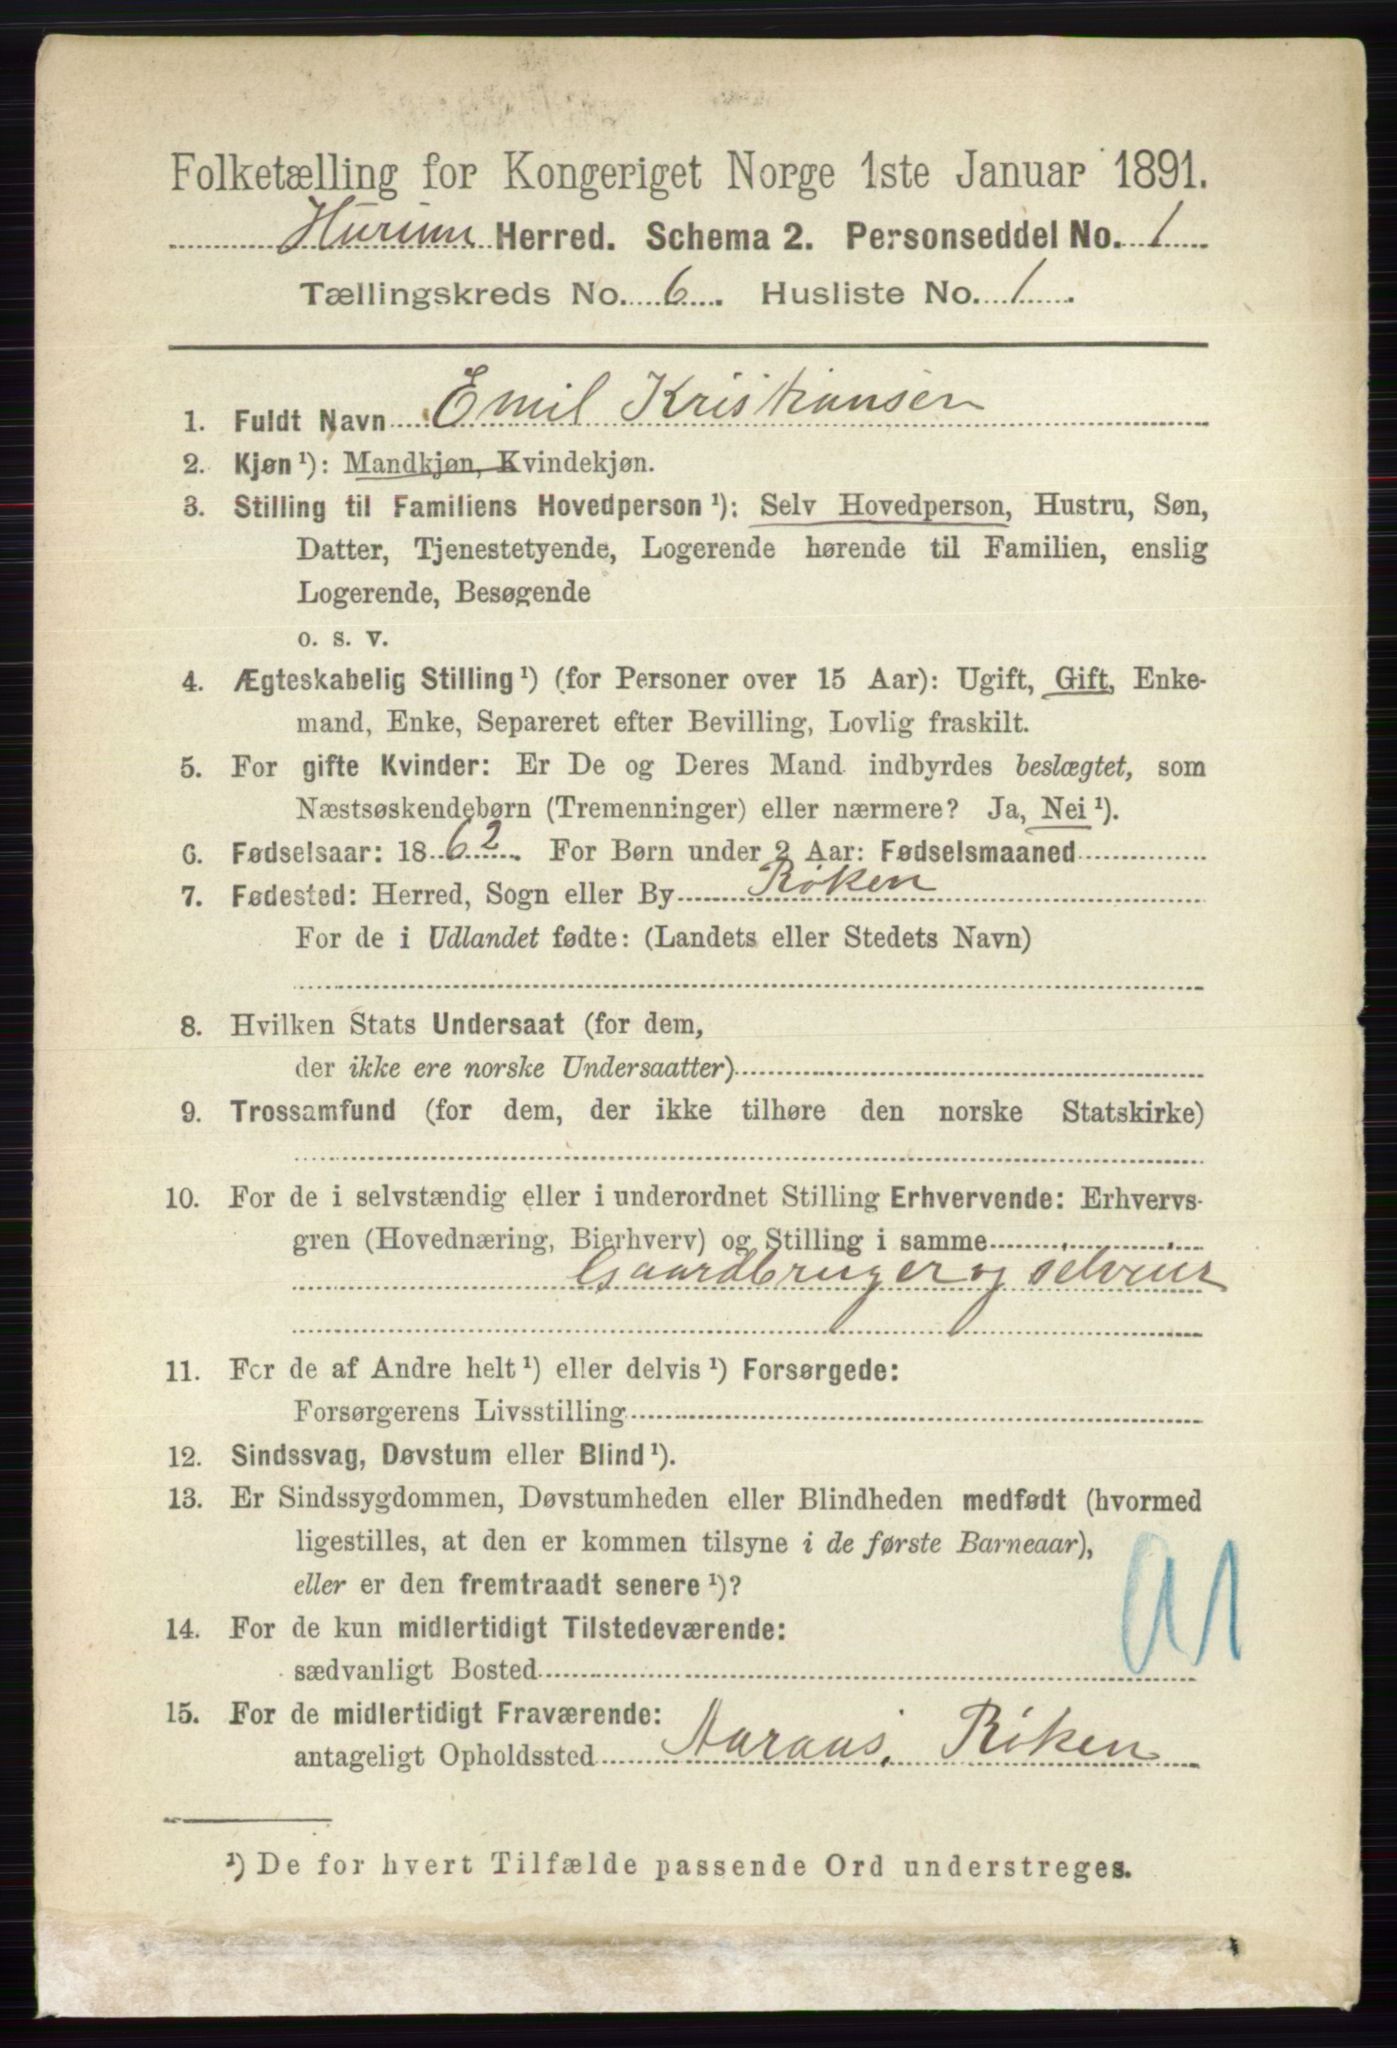 Folketælling for Kongeriget Norge 1ste Januar 1891.
Hurum Herred. Schema 2. Personseddel No. 1
Tællingskreds No. 6. Husliste No. 1.
1. Fuldt Navn Emil Kristiansen
2. Kjøn ¹): Mandkjøn, Kvindekjøn.
3. Stilling til Familiens Hovedperson ¹): Selv Hovedperson, Hustru, Søn,
Datter, Tjenestetyende, Logerende hørende til Familien, enslig
Logerende, Besøgende
o. s. v.
4. Ægteskabelig Stilling ¹) (for Personer over 15 Aar): Ugift, Gift, Enke-
mand, Enke, Separeret efter Bevilling, Lovlig fraskilt.
5. For gifte Kvinder: Er De og Deres Mand indbyrdes beslægtet, som
Næstsøskendebørn (Tremenninger) eller nærmere? Ja, Nei ¹).
6. Fødselsaar: 1862. For Børn under 2 Aar: Fødselsmaaned
7. Fødested: Herred, Sogn eller By Røken
For de i Udlandet fødte: (Landets eller Stedets Navn)
8. Hvilken Stats Undersaat (for dem,
der ikke ere norske Undersaatter)
9. Trossamfund (for dem, der ikke tilhøre den norske Statskirke)
10. For de i selvstændig eller i underordnet Stilling Erhvervende: Erhvervs-
gren (Hovednæring, Bierhverv) og Stilling i samme
Gaardbruger og selveier
11. For de af Andre helt ¹) eller delvis ¹) Forsørgede:
Forsørgerens Livsstilling
12. Sindssvag, Døvstum eller Blind ¹).
13. Er Sindssygdommen, Døvstumheden eller Blindheden medfødt (hvormed
ligestilles, at den er kommen tilsyne i de første Barneaar),
eller er den fremtraadt senere ¹)?
14. For de kun midlertidigt Tilstedeværende:
sædvanligt Bosted
15. For de midlertidigt Fraværende:
antageligt Opholdssted Aaraas, Røken
¹) De for hvert Tilfælde passende Ord understreges.